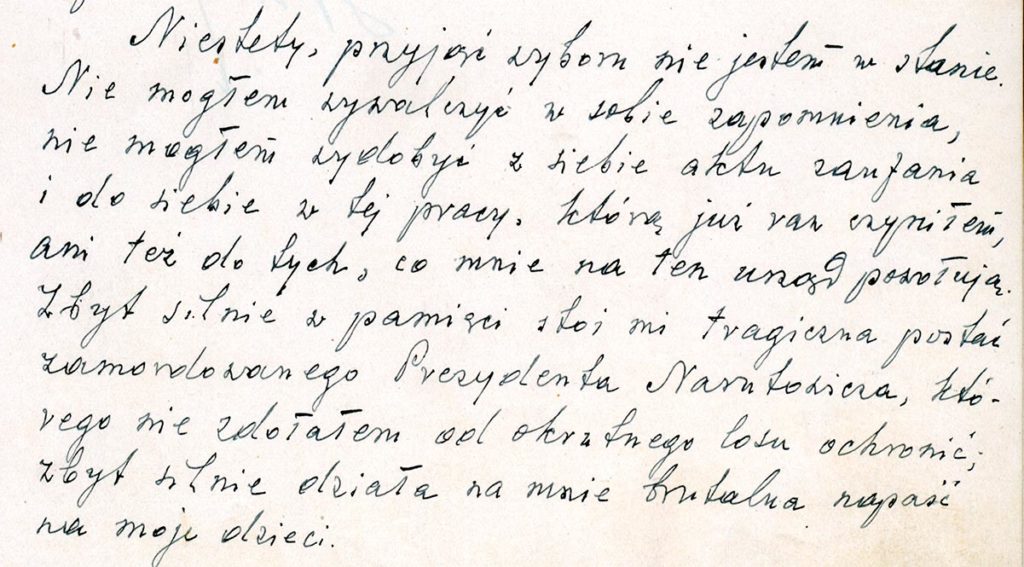 Niestety, przyjąć wyboru nie jestem w stanie.
Nie mogłem wywalczyć w sobie zapomnienia,
nie mogłem wydobyć z siebie aktu zaufania
i do siebie w tej pracy, którą już raz czyniłem,
ani też do tych, co mnie na ten urząd powołują.
Zbyt silnie w pamięci stoi mi tragiczna postać
zamordowanego Prezydenta Narutowicza, któ-
rego nie zdołałem od okrutnego losu ochronić;
zbyt silnie działa na mnie brutalna napaść
na moje dzieci.